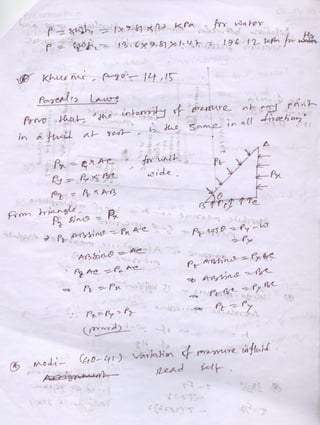 P = 1×9.81× KPa, for water
P = 13.6×9.81×1.47 = 196.12 kPa for Hg
Khurmi, Page - 14,15
Pascal's Laws
Prove that "the intensity of pressure at any point
in a fluid at rest, is the same in all direction"
A
Px = Px × AC for unit
Py = Py × BC wide.
Pz = Pz × AB
Pz
Px
B Py C
From triangle:
Pz sinθ = Px Pz cosθ = Py - W
⇒ Pz ABsinθ = Px AC = Py
ABsinθ = AC Pz ABcosθ = Py BC
∴ Pz AC = Px AC ⇒ ABcosθ = BC
⇒ Pz = Px ⇒ Pz BC = Py BC
⇒ Pz = Py
∴ Px = Py = Pz
(proved)
Modi - (40-41) Variation of pressure in fluid.
Assignment Read self.